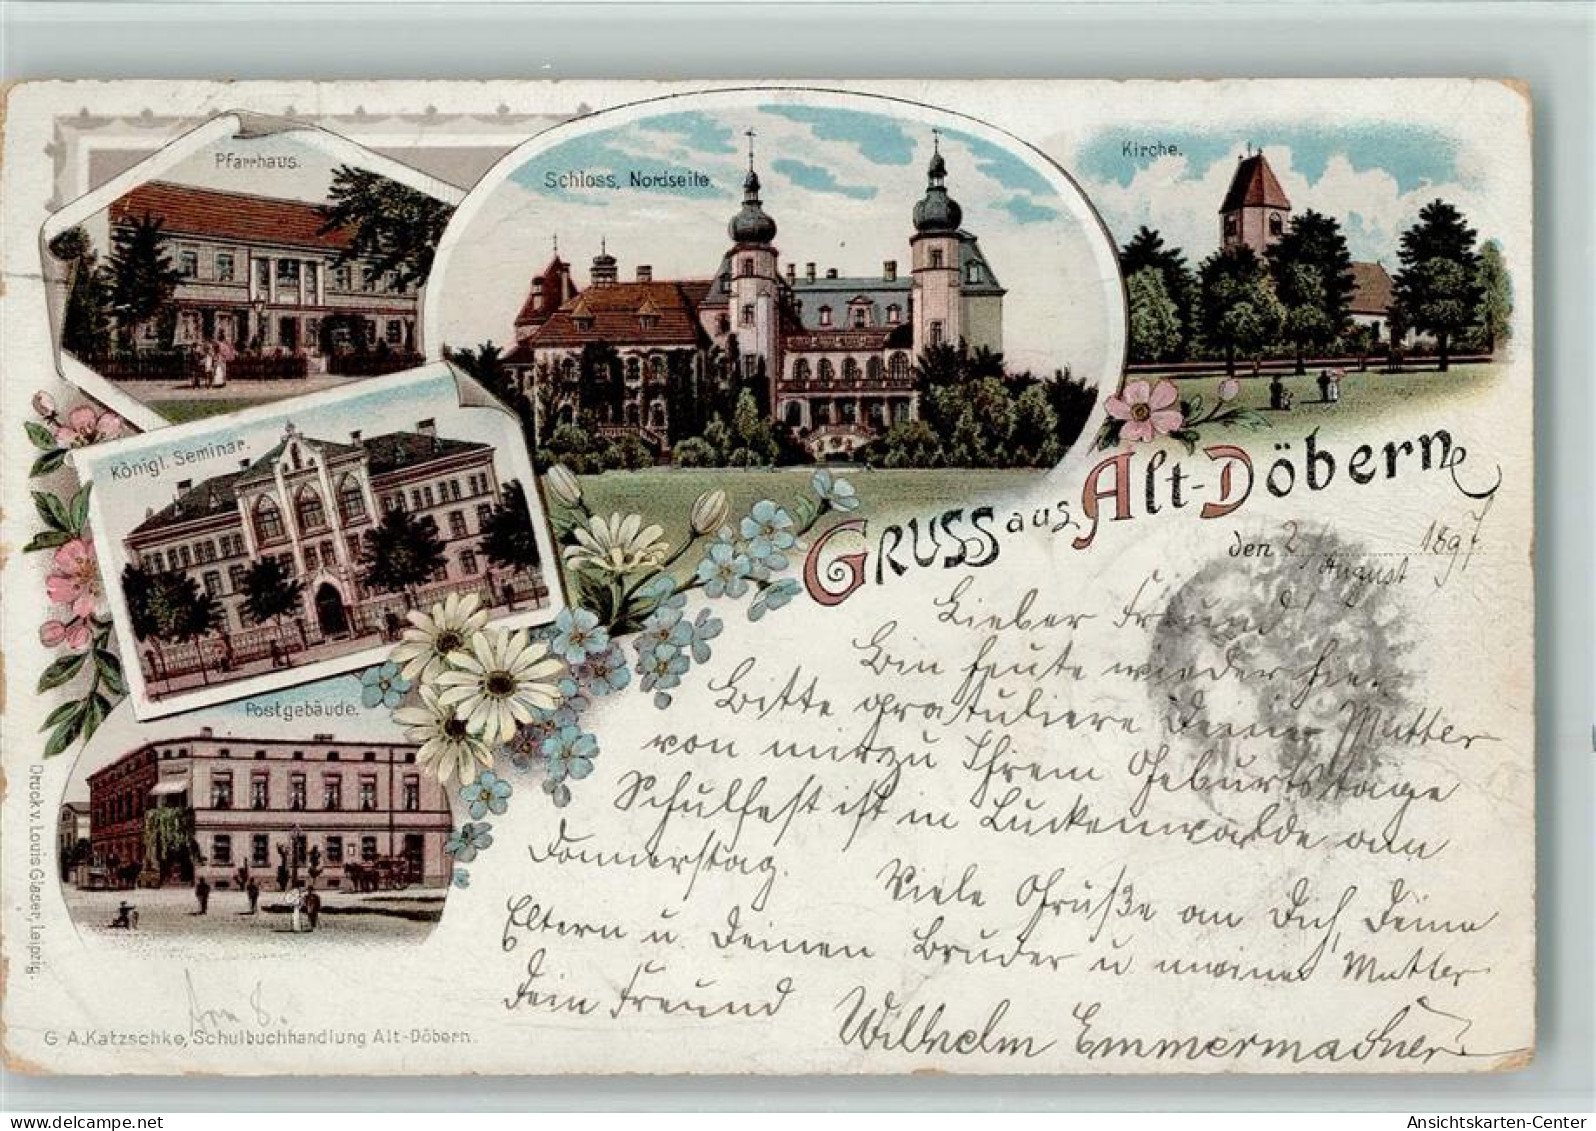 Pfarrhaus.
Schloss, Nordseite.
Kirche.
Königl. Seminar.
Postgebäude.
Gruss aus Alt-Döbern
den 2. August 1897
Lieber Freund
Bin heute wieder hie.
Bitte gratuliere Deiner Mutter
von mir zu Ihrem Geburtstage
Schulfest ist in Luckenwalde am
Donnerstag. Viele Grüße an Dich, Deine
Eltern u. Deinen Bruder u meine Mutter
Dein Freund Wilhelm Emmermacher
Druck v. Louis Glaser, Leipzig.
G. A. Katzschke, Schulbuchhandlung Alt-Döbern.
www.delcampe.net
Ansichtskarten-Center